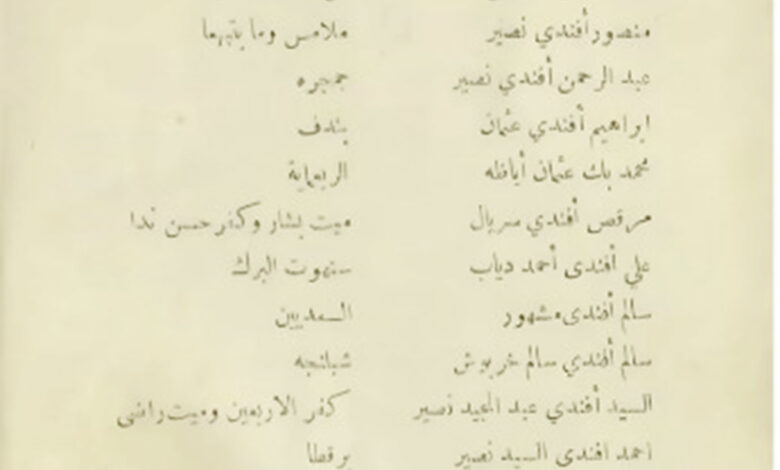 منصور أفندي نصير ملامس وما يتبهما
عبد الرحمن أفندي نصير جمجره
ابراهيم أفندي عثمان بندف
محمد بك عثمان أباظه الربعماية
مرقص أفندي سريال ميت بشار وكفر حسن ندا
علي أفندى أحمد دياب سنهوت البرك
سالم أفندى مشهور السعديين
سالم أفندي سالم خربوش شبلنجه
السيد أفندي عبد المجيد نصير كفر الاربعين وميت راضى
احمد افندى السيد نصير برقطا